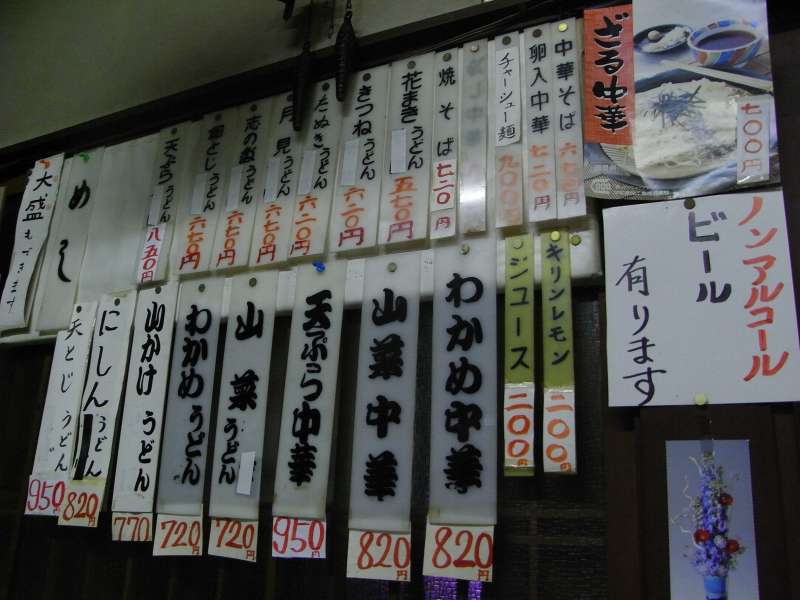 ざる中華
七〇〇
中華そば 六七〇円
卵入中華 七二〇円
チャーシュー麺 九〇〇円
焼そば 七二〇円
花まきうどん 五七〇円
きつねうどん 六二〇円
たぬきうどん 六二〇円
月見うどん 六七〇円
志の田うどん 六七〇円
うどん 六七〇円
天ぷらうどん 八五〇円
めし
大盛もできます
ノンアルコール
ビール
有ります
キリンレモン 二〇〇
ジュース 二〇〇
わかめ中華 820円
山菜中華 820円
天ぷら中華 950円
山菜うどん 720円
わかめうどん 720円
山かけうどん 770円
にしんうどん 820円
天とじうどん 950円